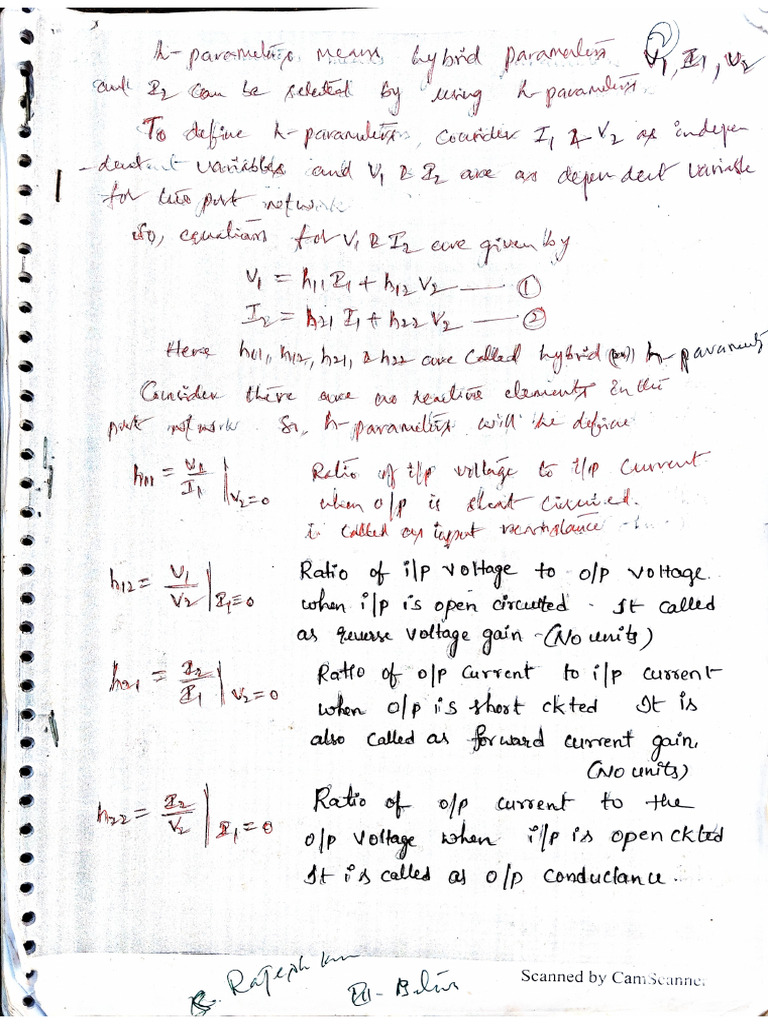 h-parameters means hybrid parameters V1, I1, V2
and I2 can be selected by using h-parameters.
To define h-parameters, consider I1 & V2 as indepen
-dent variables and V1 & I2 are as dependent variable
for two port network
So, equations for V1 & I2 are given by
V1 = h11 I1 + h12 V2 —— ①
I2 = h21 I1 + h22 V2 —— ②
Here h11, h12, h21, & h22 are called hybrid (or) h-parameters
Consider there are no reactive elements in the
port network So, h-parameters will be define
h11 = V1/I1 | V2=0 Ratio of i/p voltage to i/p current
when o/p is short circuited.
is called as input
h12 = V1/V2 | I1=0 Ratio of i/p voltage to o/p voltage.
when i/p is open circuited. It called
as reverse voltage gain - (No units)
h21 = I2/I1 | V2=0 Ratio of o/p current to i/p current
when o/p is short ckted It is
also called as forward current gain.
(No units)
h22 = I2/V2 | I1=0 Ratio of o/p current to the
o/p voltage when i/p is open ckted
It is called as o/p conductance.
Rajesh
Scanned by CamScanner